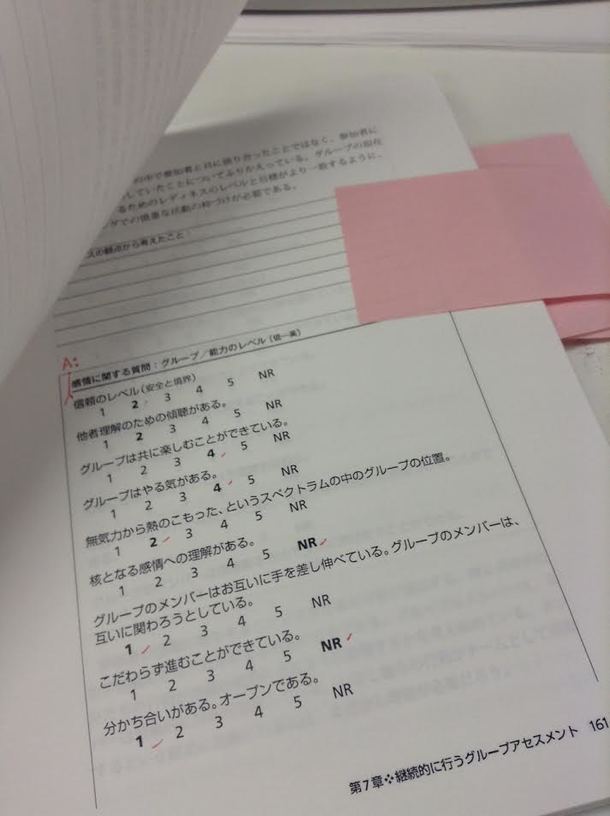 の中で参加者と共に語り合ったことではなく、参加者に
していたことについてふりかえっている。グループの現在
るためのレディネスのレベルと目標がより一致するように、
での慎重な活動の枠づけが必要である。
スの観点から考えたこと:
A:
感情に関する質問:グループ/能力のレベル(低―高)
信頼のレベル(安全と境界)
1 2 3 4 5 NR
他者理解のための傾聴がある。
1 2 3 4 5 NR
グループは共に楽しむことができている。
1 2 3 4 5 NR
グループはやる気がある。
1 2 3 4 5 NR
無気力から熱のこもった、というスペクトラムの中のグループの位置。
1 2 3 4 5 NR
核となる感情への理解がある。
1 2 3 4 5 NR
グループのメンバーはお互いに手を差し伸べている。グループのメンバーは、
互いに関わろうとしている。
1 2 3 4 5 NR
こだわらず進むことができている。
1 2 3 4 5 NR
分かち合いがある。オープンである。
1 2 3 4 5 NR
第7章❖継続的に行うグループアセスメント 161